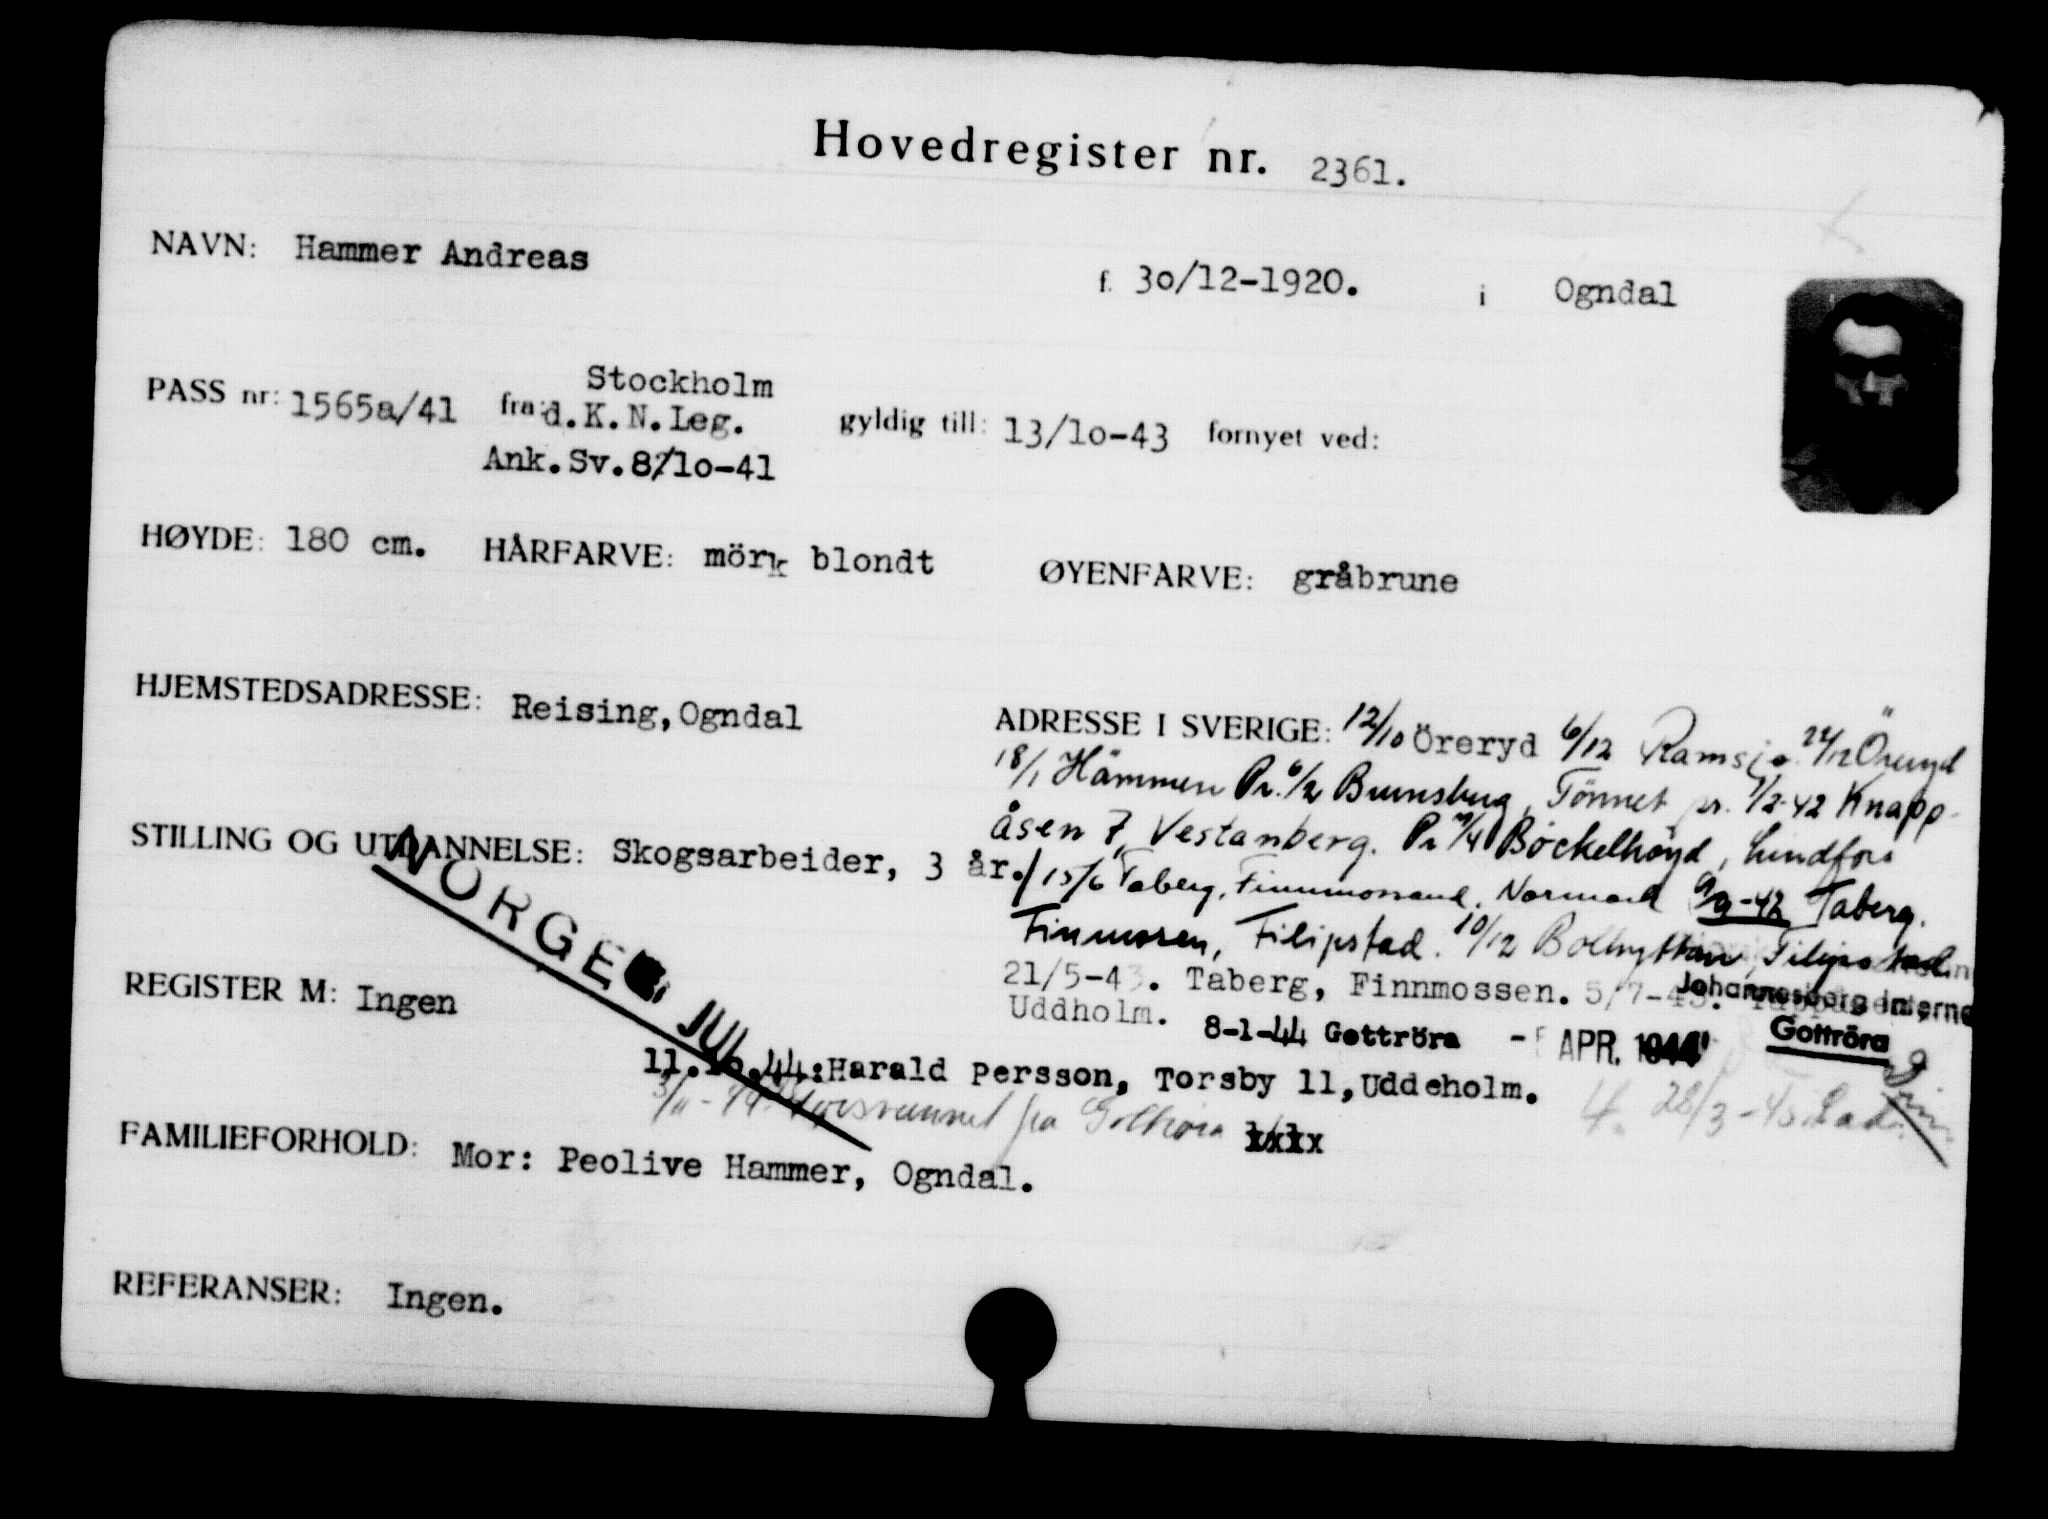 Hovedregister nr. 2361.
NAVN: Hammer Andreas f. 30/12-1920. i Ogndal
Stockholm
PASS nr: 1565a/41 fra: d.K.N.Leg. gyldig till: 13/10-43 fornyet ved:
Ank.Sv.8/10-41
HØYDE: 180 cm. HÅRFARVE: mörk blondt ØYENFARVE: gråbrune
HJEMSTEDSADRESSE: Reising, Ogndal
ADRESSE I SVERIGE: 12/10 Öreryd 6/12 Ramsjø 22/12 Öreryd
18/1 Hämmen Pr. 6/2 Brunsberg, Tönnet pr. 1/2-42 Knapp-
åsen 7, Vestanberg. Pr Böckelhöyd, Lindfors
STILLING OG UTDANNELSE: Skogsarbeider, 3 år.
15/6 Taberg, Finnmossand, Normark 9/9-42 Taberg.
Finmosen, Filipstad. 10/12 Bolhyttan, Filipstad
21/5-43. Taberg, Finnmossen. 5/7-43.
Johannesberg interne
Uddholm. 8-1-44 Gottröra - APR. 1944
Gottröra
NORGE
JUL
REGISTER M: Ingen
11.10.44: Harald Persson, Torsby 11, Uddeholm.
3/11-44 fra Gottröra xxxx
28/3-45
FAMILIEFORHOLD: Mor: Peolive Hammer, Ogndal.
REFERANSER: Ingen.